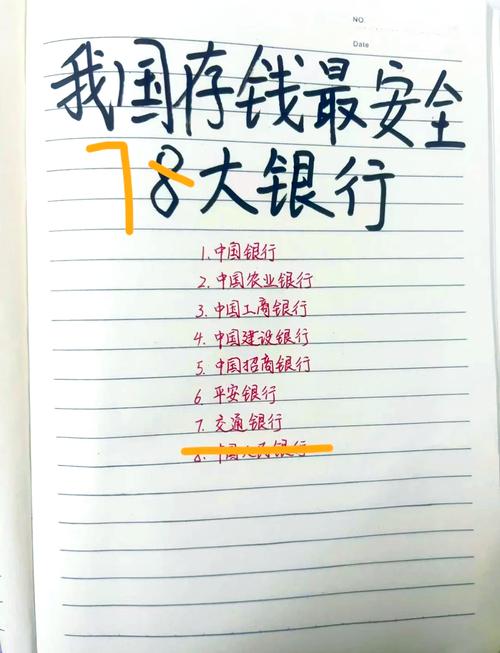 NO.
Date
我国存钱最安全
7 8大银行
1.中国银行
2.中国农业银行
3.中国工商银行
4.中国建设银行
5.中国招商银行
6.平安银行
7.交通银行
8.中国人民银行